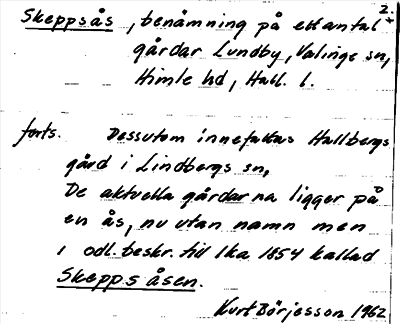 2.
Skeppsås, benämning på ett antal
gårdar Lundby, Valinge sn,
Himle hd, Hall. l.
forts. Dessutom innefattas Hallbergs
gård i Lindbergs sn,
De aktuella gårdarna ligger på
en ås, nu utan namn men
i odl. beskr. till lka 1854 kallad
Skeppsåsen.
Kurt Börjesson 1962